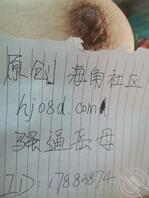 原创 海角社区
hjo8d.com
强逼岳母
ID:17883874